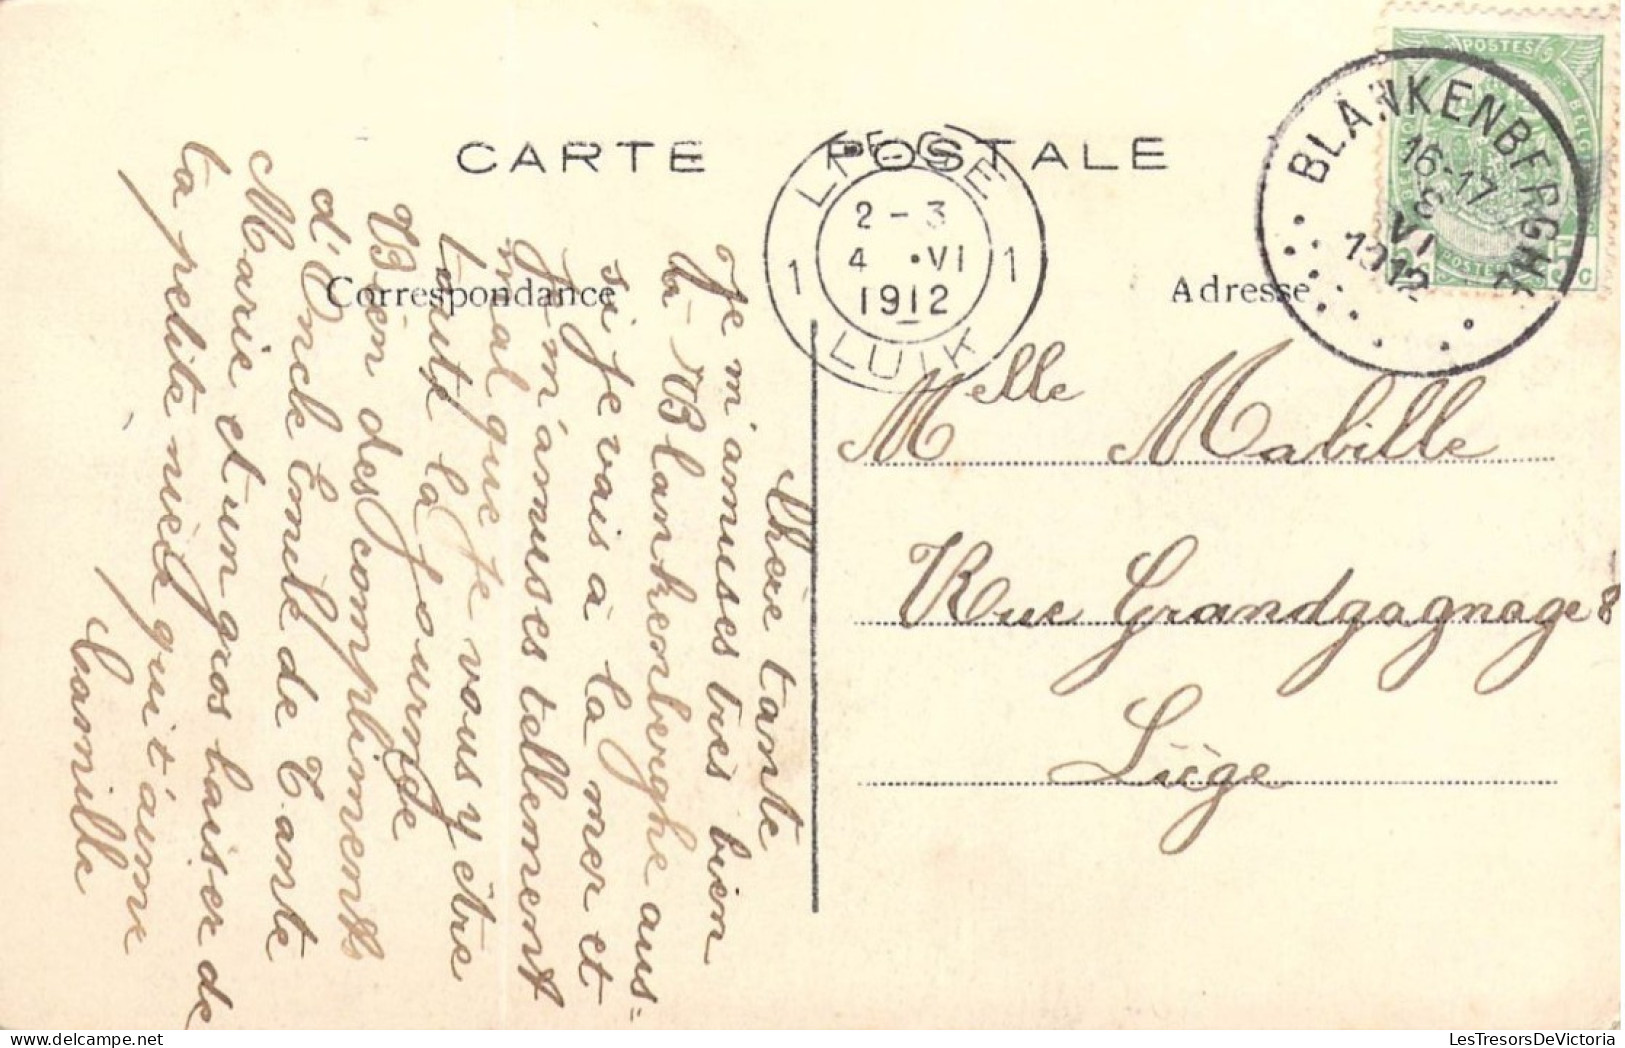 CARTE POSTALE
Correspondance
Adresse
POSTES
BELG
POSTE
5 C
BLANKENBERGHE
16-17
VI
1912
LIEGE
2 - 3
1 4 .VI 1
1912
LUIK
Melle Mabille
Rue Grandgagnage 8
Liège
Chère tante
Je m'amuses très bien
à Blankenberghe aus=
si je vais à la mer et
je m'amuses tellement
mal que je vous y être
toute la journée
Bien des compliments
d'Oncle Emile de Tante
Marie et un gros baiser de
ta petite nièce qui t'aime
Camille
LesTresorsDeVictoria